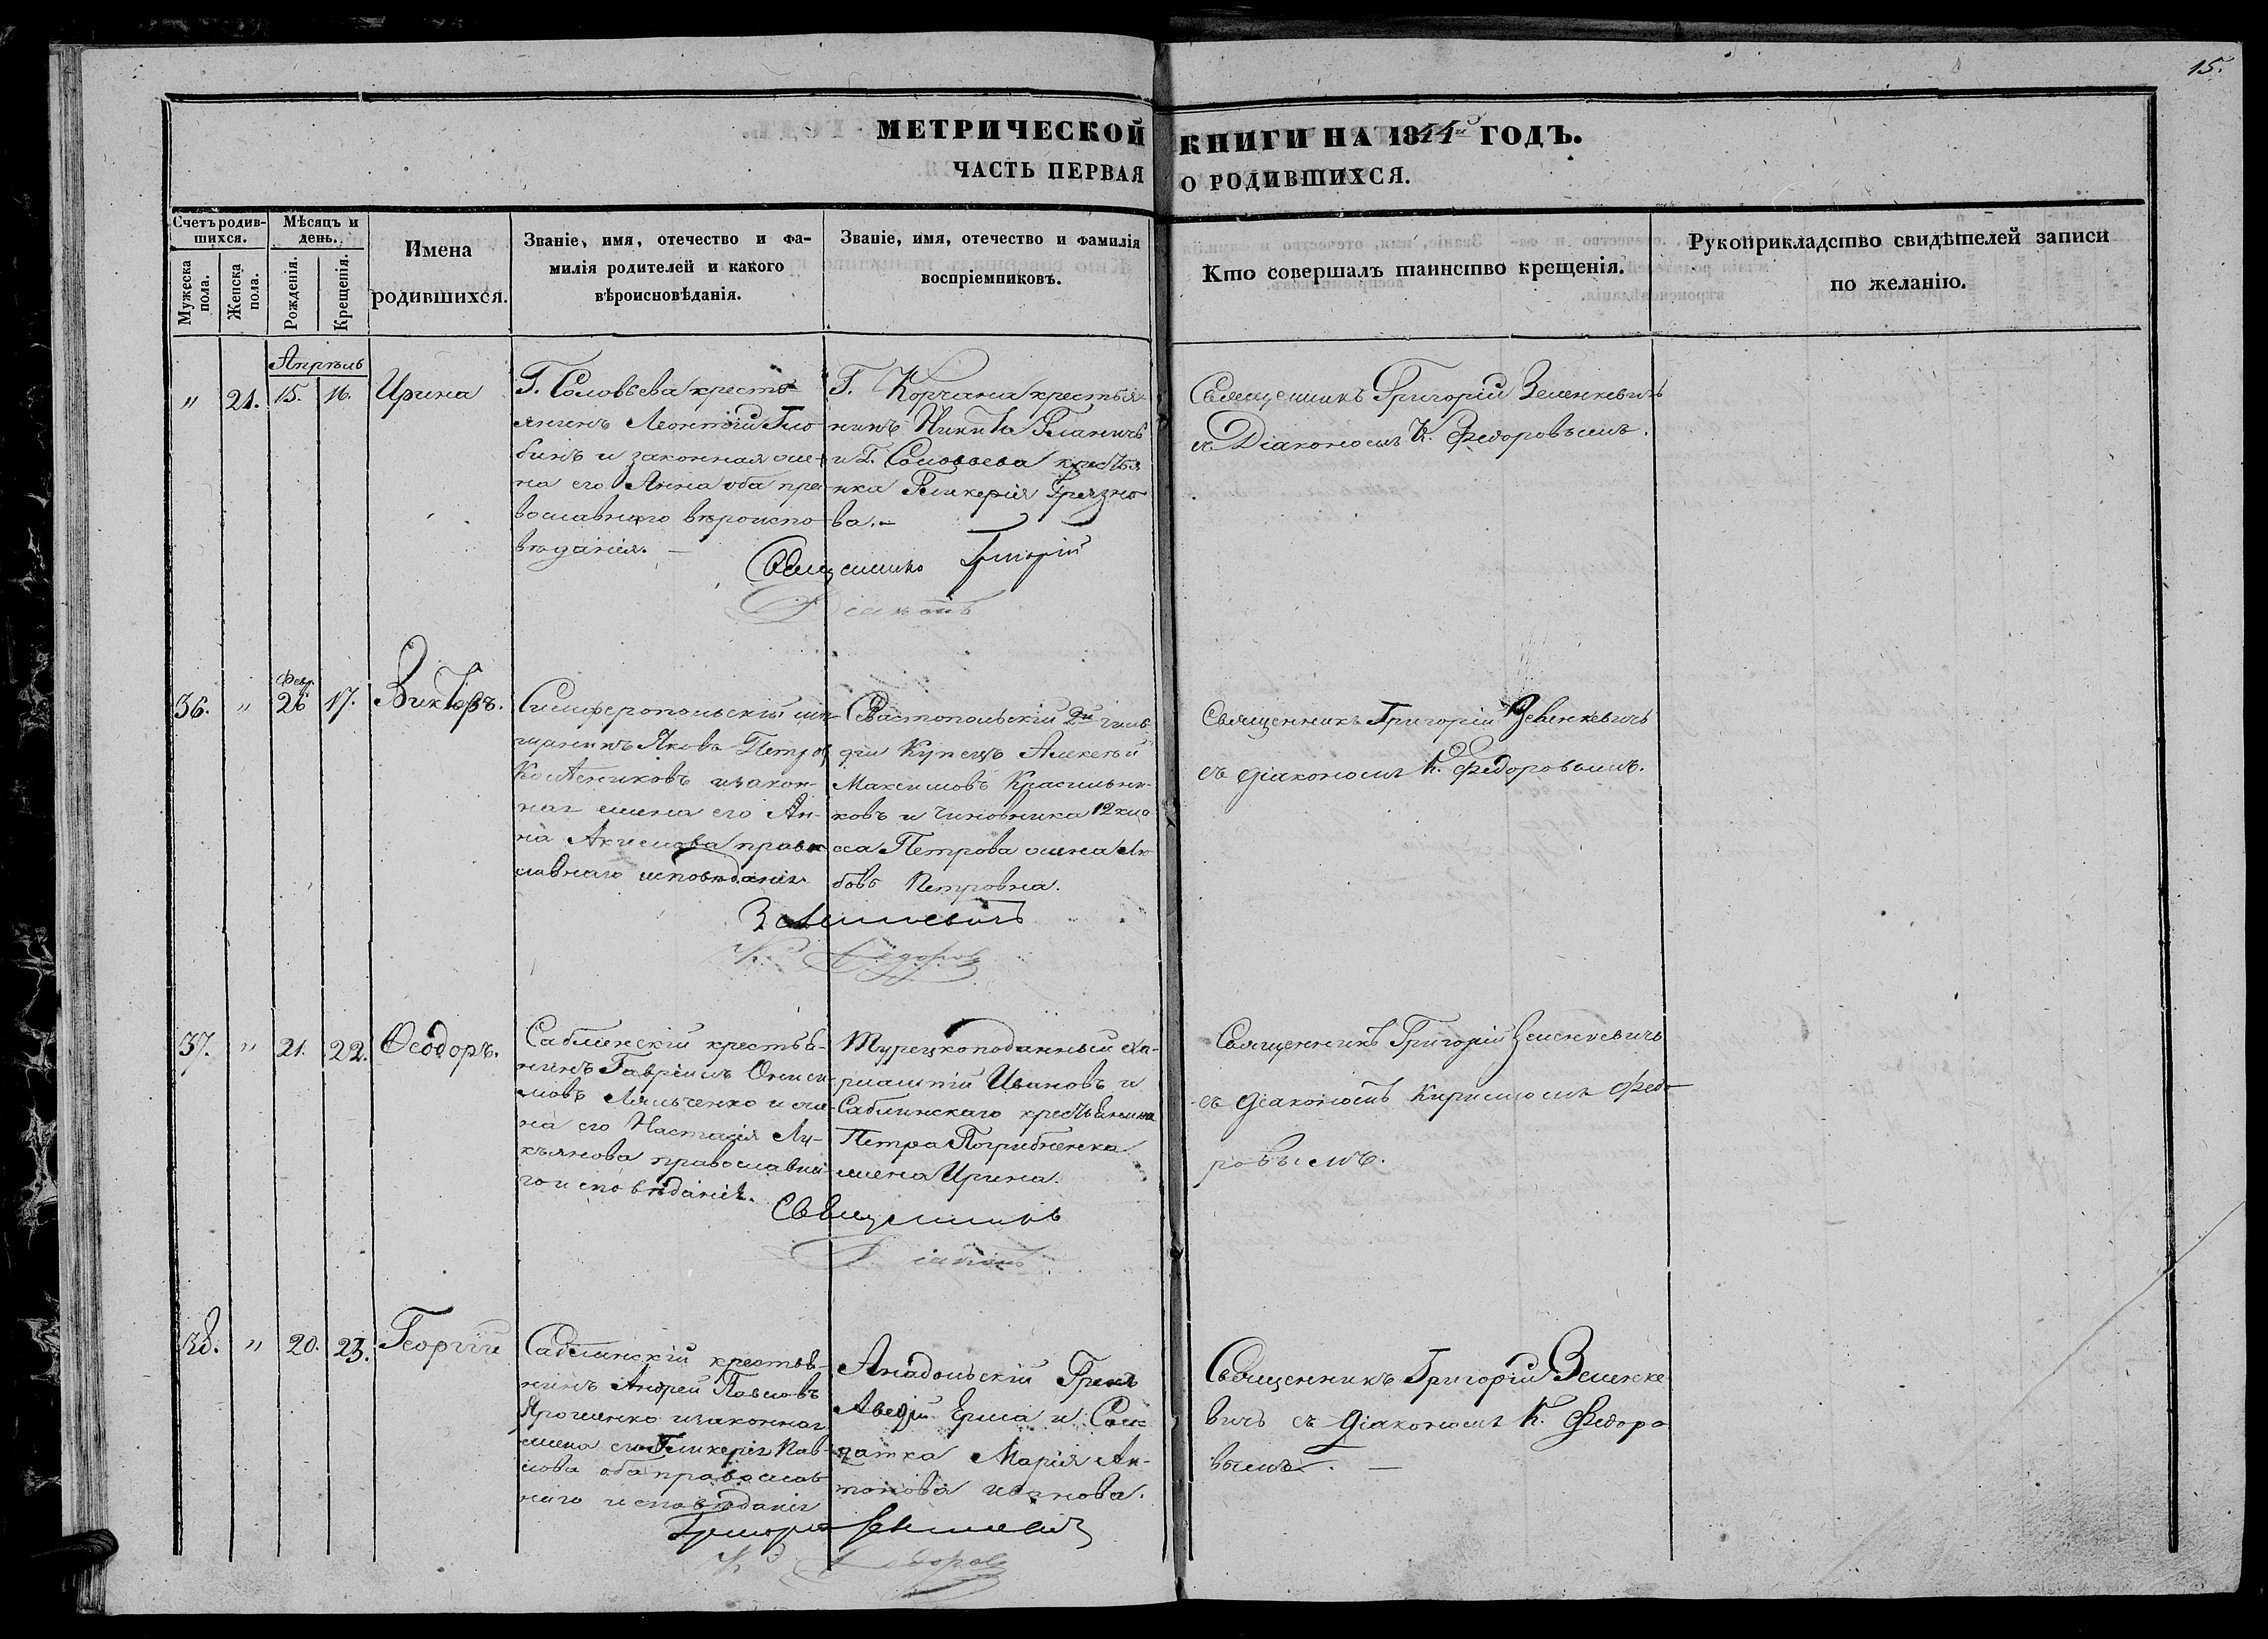 15.
МЕТРИЧЕСКОЙ КНИГИ НА 1844й ГОДЪ.
ЧАСТЬ ПЕРВАЯ О РОДИВШИХСЯ.
Счетъ родив-
шихся.
Мужеска пола.
Женска пола.
Мѣсяцъ и
день.
Рожденія.
Крещенія.
Имена
родившихся.
Званіе, имя, отечество и фа-
милія родителей и какого
вѣроисновѣданія.
Званіе, имя, отечество и фамилія
воспріемниковъ.
Кто совершалъ таинство крещенія.
Рукоприкладство свидѣтелей записи
по желанію.
Апрѣль
" 21. 15. 16. Ирина
Г. Соловьева кресть-
янинъ Леонтій
бинъ и законная же-
на его Анна оба пра-
вославнаго вѣроиспо-
вѣданія. —
Г. Корчана крестья-
нинъ Никита
и Г. Соловьева крестья
нка Гликерія Грязно-
ва. —
Священникъ Григорій Зеленкевичъ
съ Діакономъ К. Федоровымъ.
Священникъ Григорій
Діаконъ
Февр.
36. " 26 17. Викторъ.
Симферопольскій мѣ-
щанинъ Яковъ Петров
изакон-
ная жена его Ан-
на Акимова право
славнаго исповѣданія.
Севастопольскій 2й гиль-
діи Купецъ Алексѣй
Максимовъ Красильни-
ковъ и Чиновника 12 кла
сса Петрова жена Лю-
бовь Петровна.
Священникъ Григорій Зеленкевичъ
съ діакономъ К. Федоровымъ.
Зеленкевичъ
К. Федоров
37. " 21. 22. Ѳеодоръ.
Саблинскій крестья-
нинъ Гавріилъ Ониси-
мовъ Ляльченко и же-
на его Настасія Лу-
кьянова православна-
го исповѣданія.
Турецкоподанный Ха-
рлампій Ивановъ и
Саблинскаго крестьянина
Петра Погрибненка
жена Ирина.
Священникъ Григорій Зеленкевичъ
съ діакономъ Кириломъ Федо-
ровымъ.
Священникъ
Діаконъ
38. " 20. 23. Георгій
Саблинскій крестья-
нинъ Андрей Павловъ
Ярошенко изаконная
жена его Гликерія Пав-
лова оба православ-
наго исповѣданія
Анадольскій Грекъ
Аведій Ерма и Сол-
датка Марія Ан-
тонова иванова.
Священникъ Григорій Зеленке-
вичъ съ діакономъ К. Федоро
вымъ. —
Григорій Зеленкевич
К. Федоров